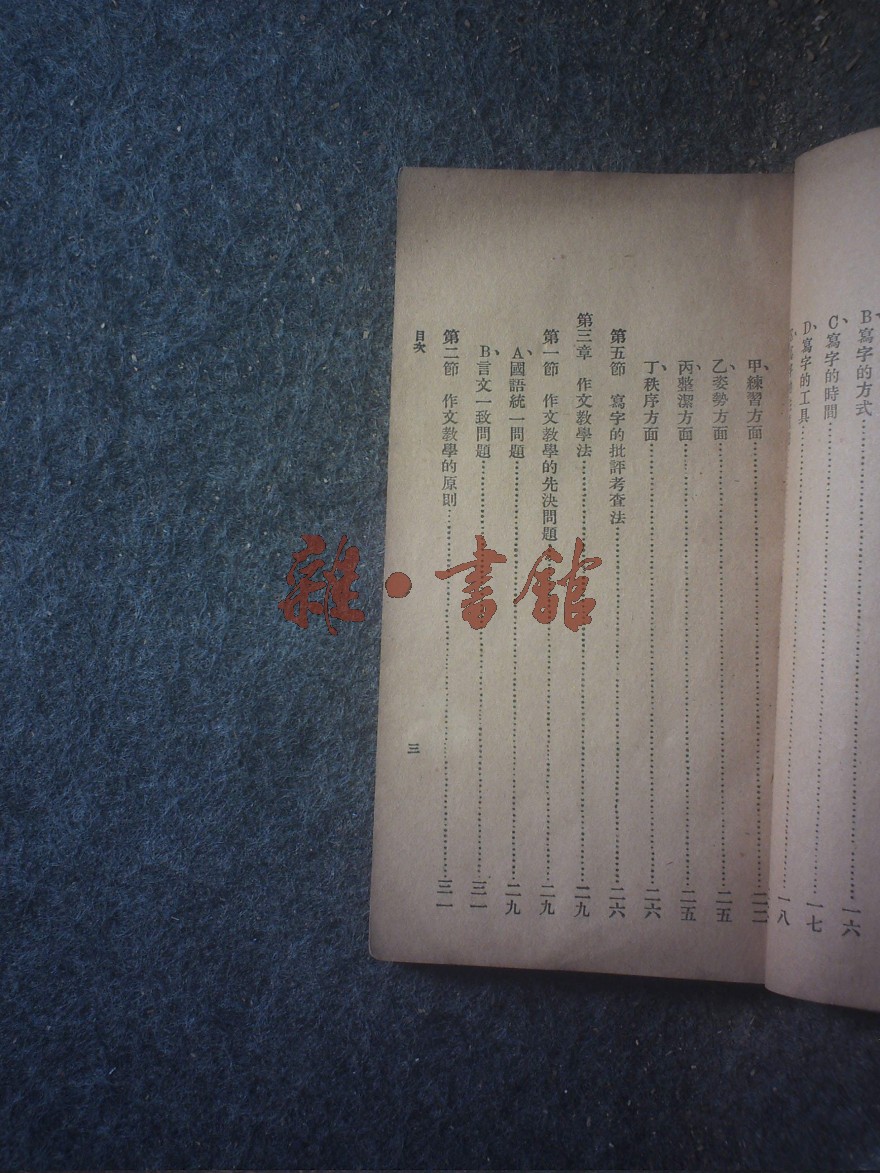 B、寫字的方式……一六
C、寫字的時間……一七
D、寫字的工具……一八
甲、練習方面……二二
乙、姿勢方面……二五
丙、整潔方面……二五
丁、秩序方面……二六
第五節 寫字的批評考查法……二六
第三章 作文教學法……二九
第一節 作文教學的先決問題……二九
A、國語統一問題……二九
B、言文一致問題……三一
第二節 作文教學的原則……三一
目次
三
雜·書館